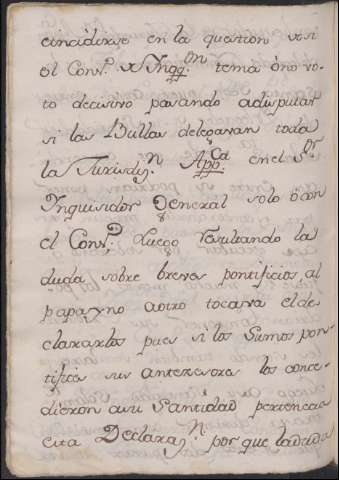 eincidirse en la question de si
el Cons.º de Inqq.on tenia ô no vo-
to decisivo pasando adisputar
si las Bullas delegavan toda
la Jurisdi.n App.ca en el S.or
Inquisidor General solo ô con
el Cons.º Luego resultando la
duda sobre breves pontificios, al
papa y no aotro tocava el de
clararlos pues si los Sumos pon-
tifices sus antecesores los conce-
dieron a su Santidad pertenecia
esta Declaraz.n por que la duda